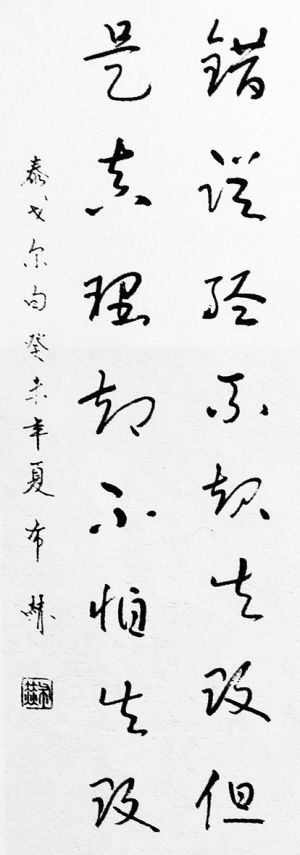 错误经不起失败但
是真理却不怕失败
泰戈尔句癸未年夏布赫